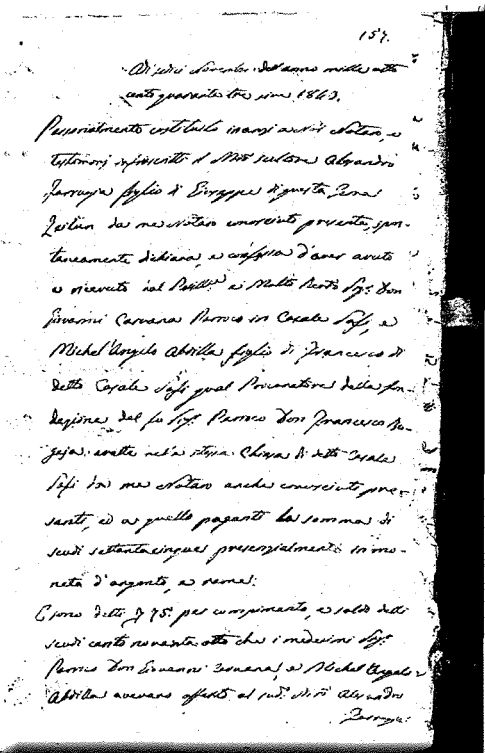 157.
Adi sedici Novembre del anno mille otto
cento quaranta tre sive 1843.
Personalmente costituito inanzi a Noi Notaro, e
testimonj infrascritti il scultore Alesandro
Farrugia figlio di Giuseppe di questa Terra
Zeitun da me Notaro conosciuto presente, spon-
taneamente dichiara, e confessa d'aver avuto
e ricevuto dal e Molto Sig.r Don
Giovanni Caruana Parroco in Casale Safi, e
Michel'Angelo Abdilla figlio di Francesco di
detto Casale Safi qual Procuratore della fon-
dazione del fu Sig.r Parroco Don Francesco Bu-
geja eretta nella stessa Chiesa di detto Casale
Safi da me Notaro anche conosciuto pre-
senti, ed a quello paganti la somma di
scudi settantacinque presenzialmente in mo-
neta d'argento, e rame:
E sono detti 75. per compimento, e saldo delli
scudi cento novanta otto che i medesimi Sig.r
Parroco Don Giovanni Caruana, e Michel'Angelo
Abdilla avevano offerto al sud.o Alesandro
Farrugia